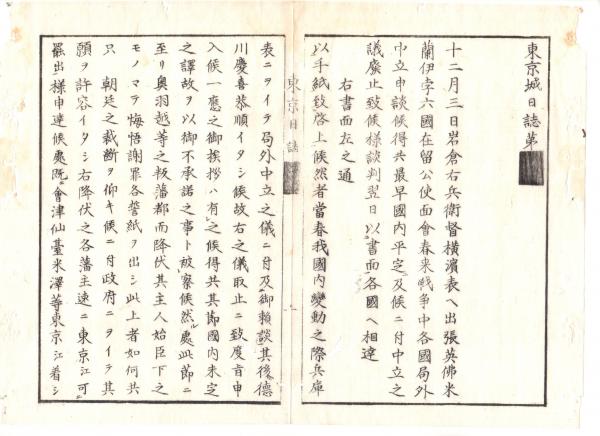 東京城日誌第
十二月三日岩倉右兵衛督横濱表ヘ出張英佛米
蘭伊孛六國在留公使面會春来戦争中各國局外
中立申談候得共最早國内平定ニ及候ニ付中立之
議廃止致候様談判翌日以書面各國ヘ相達
右書面左之通
以手紙致啓上候然者當春我國内變動之際兵庫
東京日誌
表ニヲイテ局外中立之儀ニ付及御頼談其後徳
川慶喜恭順イタシ候故右之儀取止ニ致度旨申
入候一應之御挨拶ハ有之候得共其節國内未定
之譯故ヲ以御不承諾之事ト被察候然ル處此節ニ
至リ奥羽越等之叛藩都而降伏其主人始臣下之
モノマテ悔悟謝罪各誓紙ヲ出シ此上者如何共
只　朝廷之裁断ヲ仰キ候ニ付政府ニヲイテ其
願ヲ許容イタシ右降伏之各藩主速ニ東京江可
罷出様申達候處既ニ會津仙臺米澤等東京江着シ